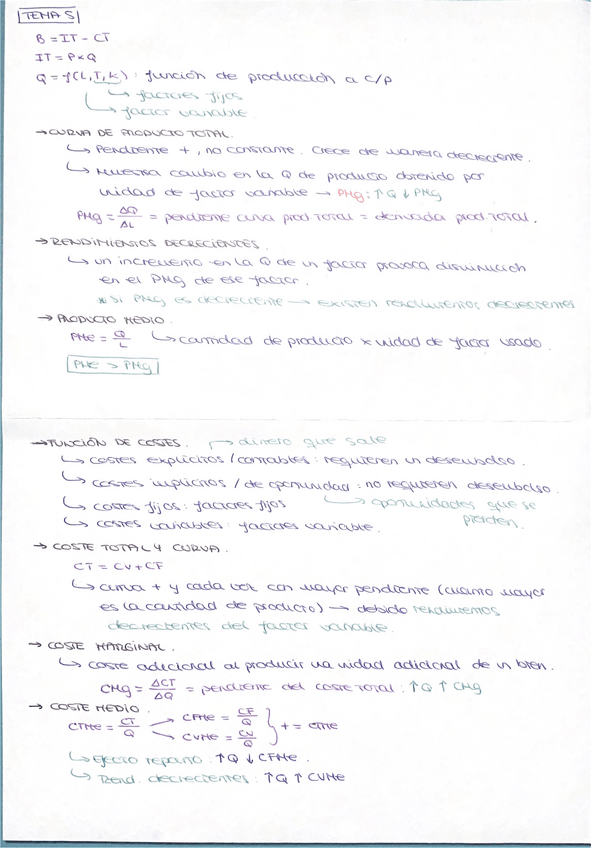 TEMA 5
B = IT - CT
IT = P x Q
Q = f(L,T,K) : función de producción a c/p
↳ factores fijos
↳ factor variable.
→ CURVA DE PRODUCTO TOTAL.
↳ Pendiente +, no constante. Crece de manera decreciente.
↳ Muestra cambio en la Q de producto obtenido por
unidad de factor variable → PMg: ↑Q ↓PMg
PMg = ΔQ/ΔL = pendiente curva prod. TOTAL = derivada prod. TOTAL.
→ RENDIMIENTOS DECRECIENTES.
↳ un incremento en la Q de un factor provoca disminución
en el PMg de ese factor.
* Si PMg es decreciente → existen rendimientos decrecientes
→ PRODUCTO MEDIO.
PMe = Q/L ↳ cantidad de producto x unidad de factor usado.
PMe > PMg
→ FUNCIÓN DE COSTES. → dinero que sale
↳ costes explícitos / contables : requieren un desembolso.
↳ costes implícitos / de oportunidad : no requieren desembolso.
↳ costes fijos : factores fijos ↳ oportunidades que se
↳ costes variables : factores variable. pierden.
→ COSTE TOTAL Y CURVA.
CT = CV + CF
↳ curva + y cada vez con mayor pendiente (cuanto mayor
es la cantidad de producto) → debido rendimientos
decrecientes del factor variable.
→ COSTE MARGINAL.
↳ coste adicional al producir una unidad adicional de un bien.
CMg = ΔCT/ΔQ = pendiente del coste total : ↑Q ↑CMg
→ COSTE MEDIO.
CTMe = CT/Q → CFMe = CF/Q
→ CVMe = CV/Q } + = CTMe
↳ Efecto reparto : ↑Q ↓CFMe.
↳ Rend. decrecientes : ↑Q ↑CVMe